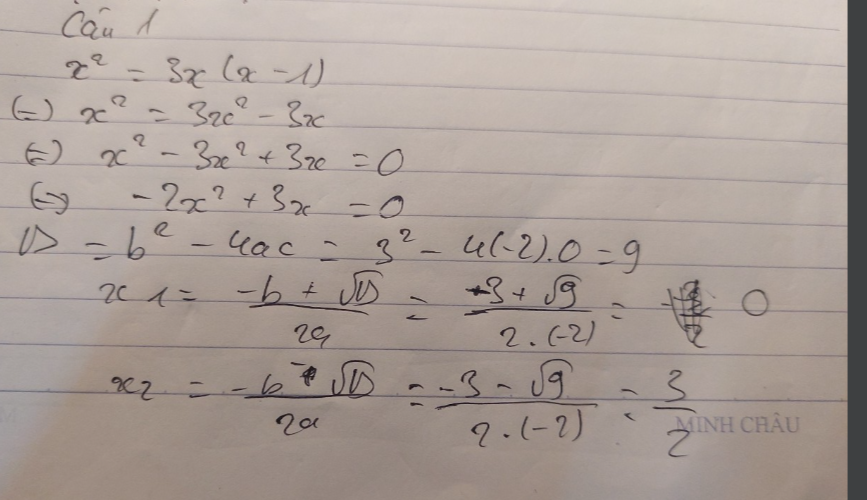 Câu 1
x² = 3x (x - 1)
(=) x² = 3x² - 3x
(=) x² - 3x² + 3x = 0
(=) - 2x² + 3x = 0
Δ = b² - 4ac = 3² - 4(-2).0 = 9
x1 = (-b + √Δ)/(2a) = (-3 + √9)/(2.(-2)) = 0
x2 = (-b - √Δ)/(2a) = (-3 - √9)/(2.(-2)) = 3/2
MINH CHÂU